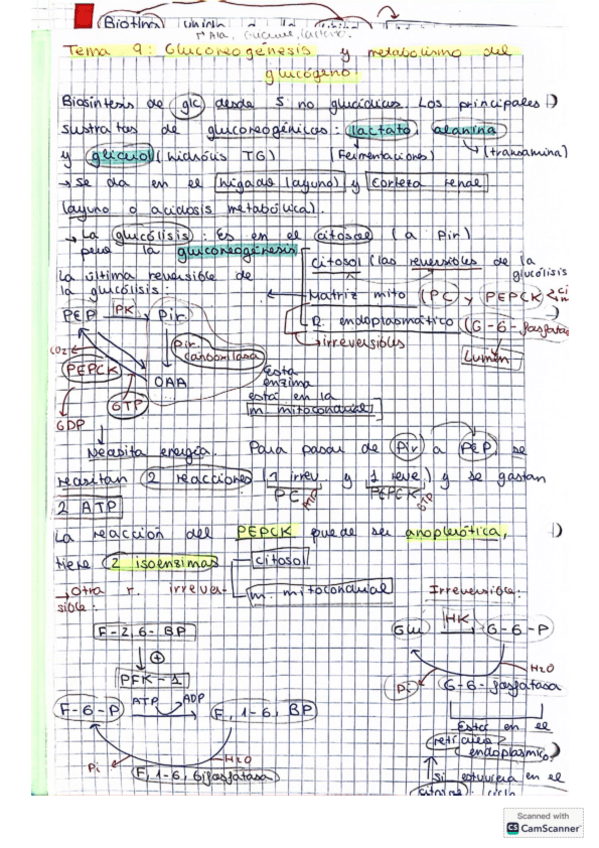 (Biotina) unida a la
Tema 9: Gluconeogénesis y metabolismo del
glucógeno:
Biosíntesis de glc desde S no glucídicas. Los principales
sustratos de gluconeogénicos: lactato, alanina
y glicerol (hidrólisis TG) (Fermentaciones) (transamina)
→ Se da en el hígado (ayuno) y corteza renal
(ayuno o acidosis metabólica).
→ La glucólisis: Es en el citosol (a Pir)
pero la gluconeogénesis
Citosol (las reversibles de la
glucólisis
La última irreversible de
la glucólisis:
Matriz mito (PC y PEPCK
R. endoplasmático (G-6-fosfatasa
irreversibles
Lumen
PEP PK Pir
Pir carboxilasa
CO2
PEPCK
OAA
GTP
GDP
Esta
enzima
está en la
m. mitocondrial
Necesita energía. Para pasar de Pir a PEP se
necesitan 2 reacciones (1 irrev. y 1 reve.) y se gastan
PC ATP PEPCK GTP
2 ATP
La reacción del PEPCK puede ser anaplerótica,
tiene 2 isoenzimas
citosol
m. mitocondrial
→ Otra r. irrever-
sible:
Irreversible:
F-2,6-BP
+
PFK-1
F-6-P ATP ADP F,1-6,BP
Pi H2O
F,1-6,bifosfatasa
Glu HK G-6-P
H2O
Pi G-6-fosfatasa
Está en el
retículo
endoplasmico
Si estuviera en el
Scanned with
CS CamScanner